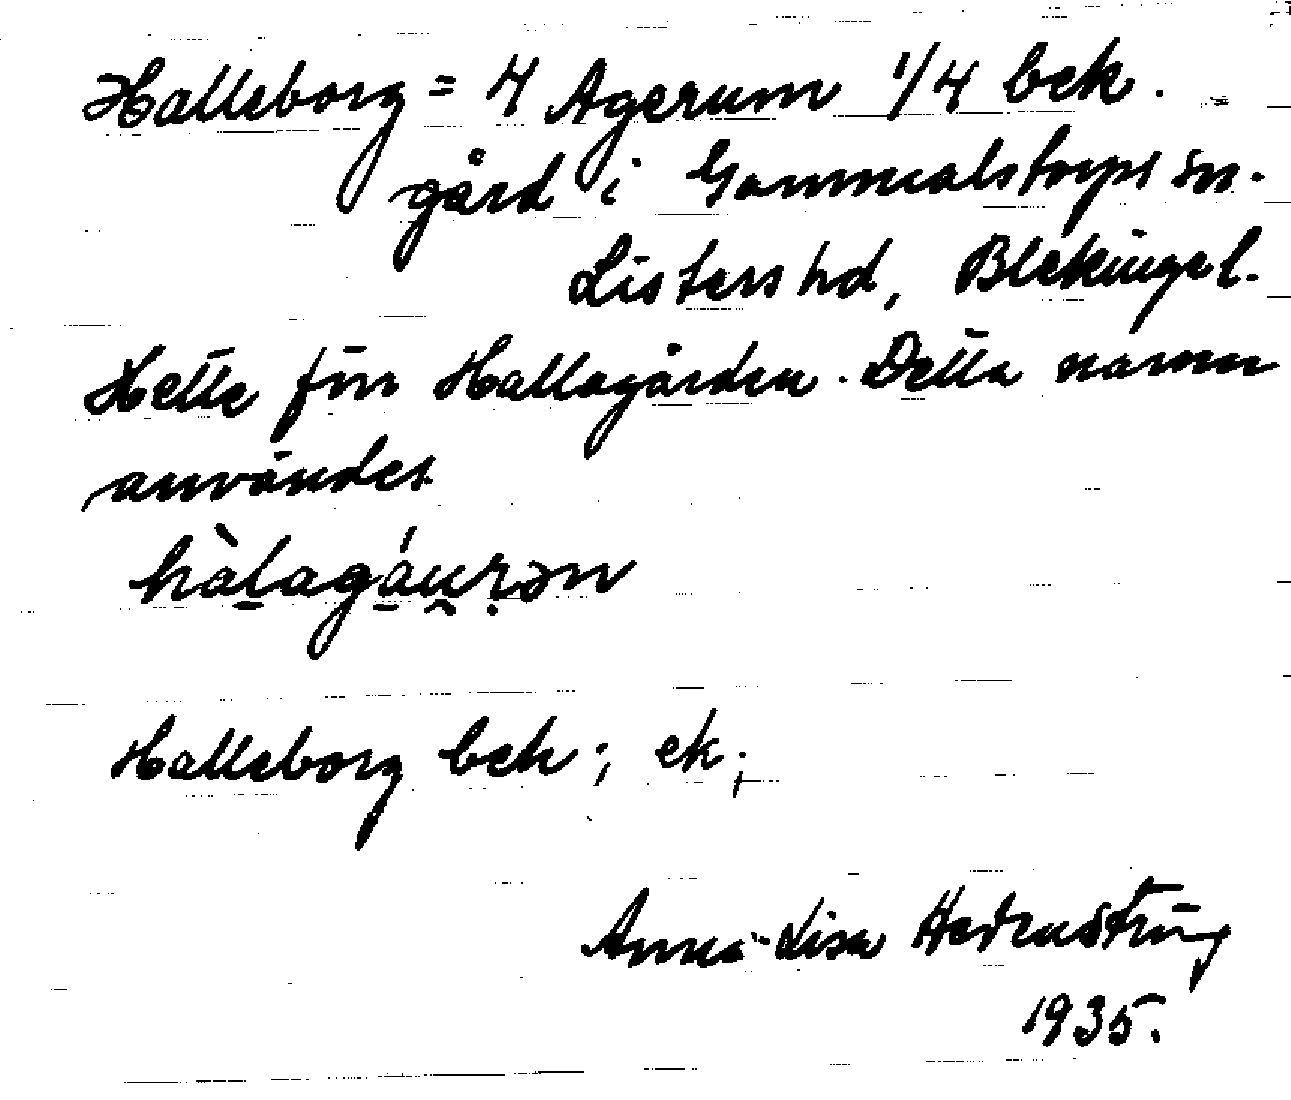 Halleborg = 4 Agerum 1/4 bek.
gård i Gammalstorps sn.
Listers hd, Blekinge l.
Hette förr Hallagården. Detta namn
användes
hàlagáu̯ṛən
Halleborg bek; ek;
Anna-Lisa Hedenström
1935.